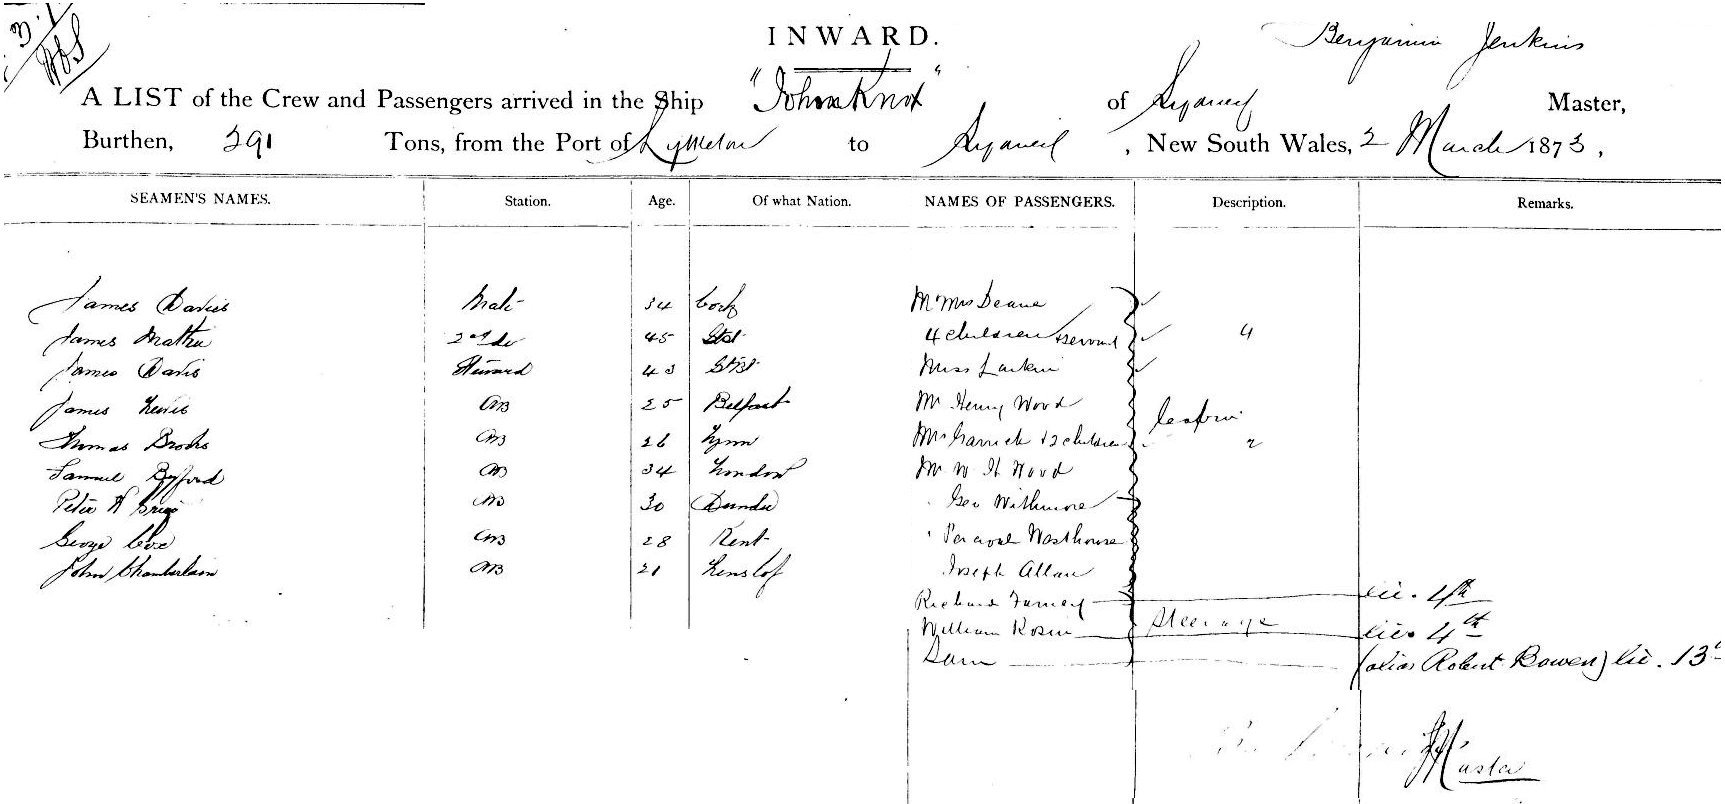 INWARD.
Benjamin Jenkins
A LIST of the Crew and Passengers arrived in the Ship "John Knox" of Sydney Master,
Burthen, 291 Tons, from the Port of Lyttelton to Sydney, New South Wales, 2 March 1873,
SEAMEN'S NAMES. Station. Age. Of what Nation. NAMES OF PASSENGERS. Description. Remarks.
James Davies Mate 34 Cork Mr Mrs Deane
James 2nd do 45 4 children & servant 4
James Davis Steward 43 Miss Larkin
James Lewis AB 25 Belfast Mr Henry Wood
Cabin
Thomas Brooks AB 26 Lynn Mrs Garrick + 2 children 2
Samuel Byford AB 34 London Mr W H Wood
Peter AB 30 Dundee Geo
George Cox AB 28 Kent
John Chamberlain AB 21 Joseph Allan
Richard 4th
William Steerage 4th
Sam (alias Robert Bowen) 13
Master